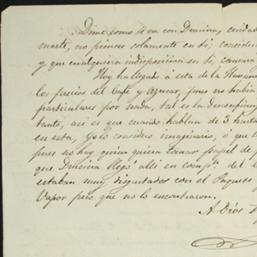 Dime como te va con Dionisia, cuidad
muerte, no pienses solamente en ti, consider
y que cualquiera indisposicion en ti, causara
Hoy ha llegado á esta de la Havana
los precios del Cafe y Azucar, pues no habia
particulares por nada, tal es la desconfianz
tanto, asi es que cuando hablan de 3 hasta
en esta, yo lo considero imaginario, ó que
pues no hay quien quiera tomar papel de
que Dionisia llegó alli en comp.ª del
estaban muy disgustados con el Paquete
Vapor pues que no lo encontraron.
A Dios